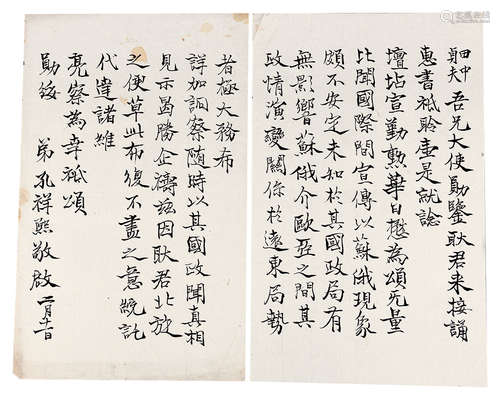 吾兄大使勛鑒耿君來接誦
惠書祇聆壹是就諗
壇坫宣勤勳華日懋為頌无量
比聞國際間宣傳以蘇俄現象
頗不安定未知於其國政局有
無影響蘇俄介歐亞之間其
政情演變關係於遠東局勢
者極大務希
詳加詗察隨時以其國政聞真相
見示曷勝企禱茲因耿君北旋
之便草此布復不盡之意統託
代達諸維
亮察為幸祗頌
勛綏
弟孔祥熙敬啟 二月十一日